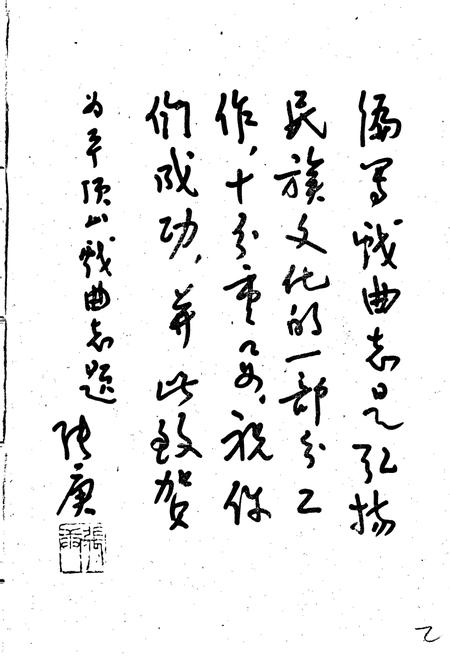 编写戏曲志是弘扬
民族文化的一部分工
作，十分重要，祝你
们成功，并此致贺
为平顶山戏曲志题
张庚